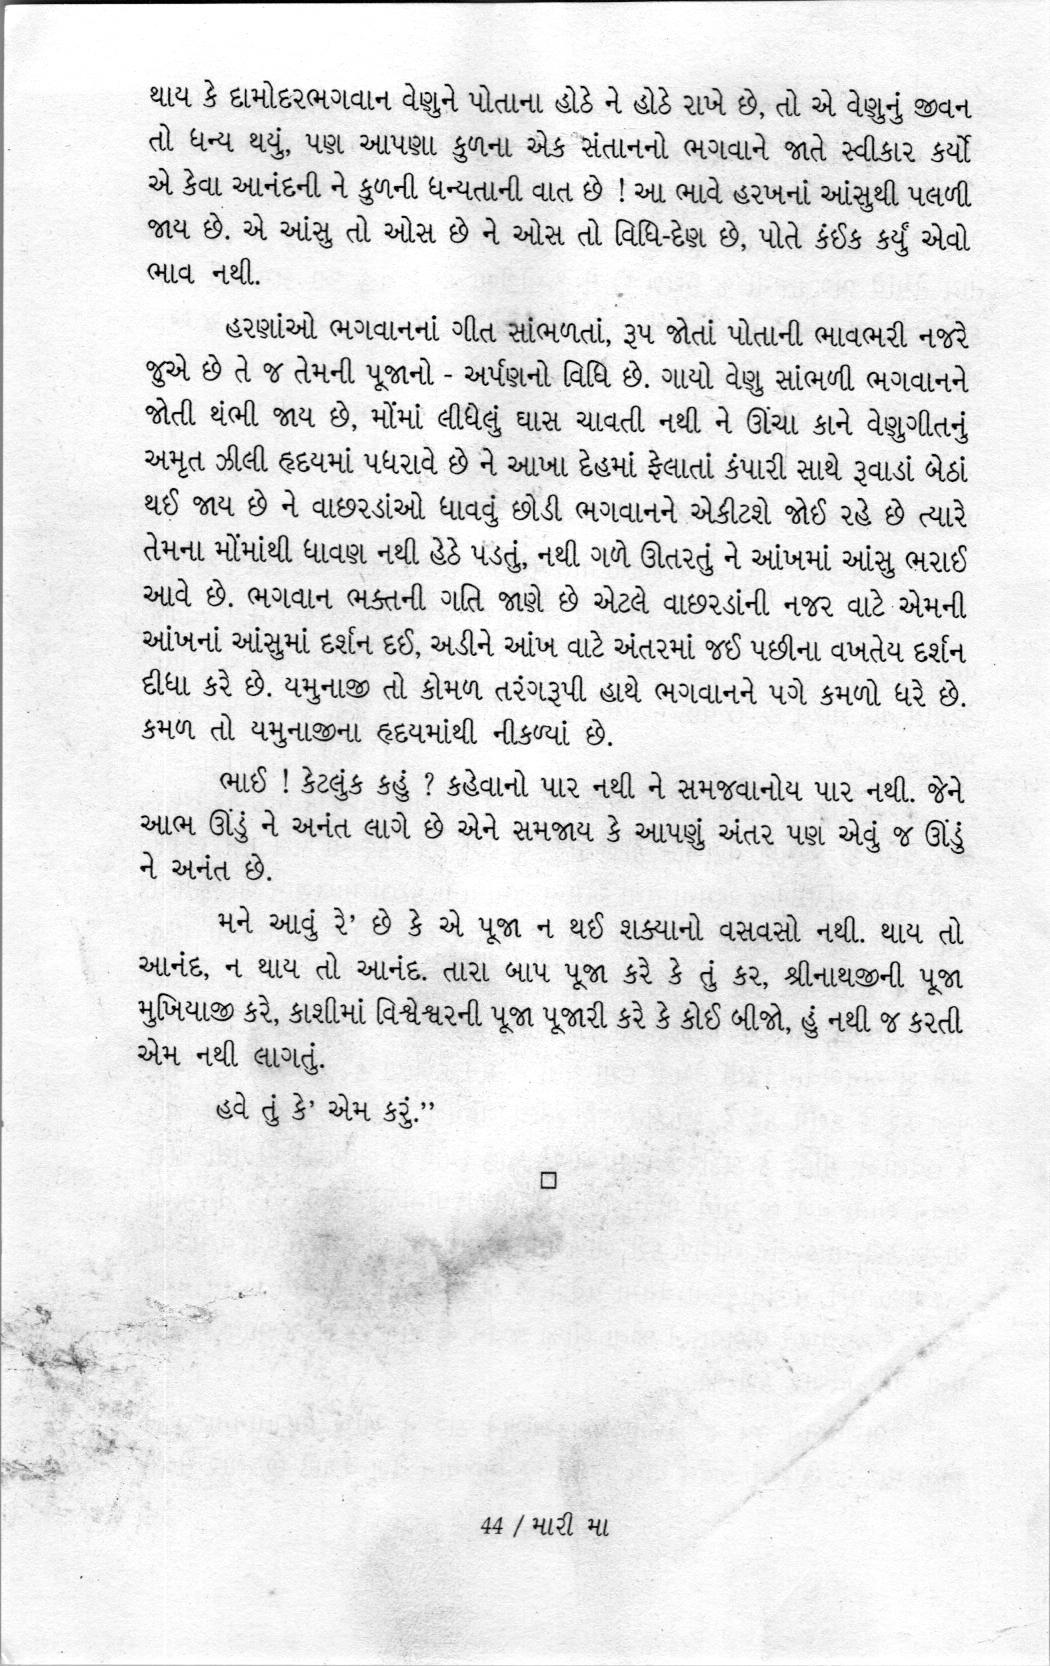 થાય કે દામોદરભગવાન વેણુને પોતાના હોઠે ને હોઠે રાખે છે, તો એ વેણુનું જીવન
તો ધન્ય થયું, પણ આપણા કુળના એક સંતાનનો ભગવાને જાતે સ્વીકાર કર્યો
એ કેવા આનંદની ને કુળની ધન્યતાની વાત છે ! આ ભાવે હરખનાં આંસુથી પલળી
જાય છે. એ આંસુ તો ઓસ છે ને ઓસ તો વિધિ-દેણ છે, પોતે કંઈક કર્યું એવો
ભાવ નથી.
હરણાંઓ ભગવાનનાં ગીત સાંભળતાં, રૂપ જોતાં પોતાની ભાવભરી નજરે
જુએ છે તે જ તેમની પૂજાનો - અર્પણનો વિધિ છે. ગાયો વેણુ સાંભળી ભગવાનને
જોતી થંભી જાય છે, મોંમાં લીધેલું ઘાસ ચાવતી નથી ને ઊંચા કાને વેણુગીતનું
અમૃત ઝીલી હૃદયમાં પધરાવે છે ને આખા દેહમાં ફેલાતાં કંપારી સાથે રૂવાડાં બેઠાં
થઈ જાય છે ને વાછરડાંઓ ધાવવું છોડી ભગવાનને એકીટશે જોઈ રહે છે ત્યારે
તેમના મોંમાંથી ધાવણ નથી હેઠે પડતું, નથી ગળે ઊતરતું ને આંખમાં આંસુ ભરાઈ
આવે છે. ભગવાન ભક્તની ગતિ જાણે છે એટલે વાછરડાંની નજર વાટે એમની
આંખનાં આંસુમાં દર્શન દઈ, અડીને આંખ વાટે અંતરમાં જઈ પછીના વખતેય દર્શન
દીધા કરે છે. યમુનાજી તો કોમળ તરંગરૂપી હાથે ભગવાનને પગે કમળો ધરે છે.
કમળ તો યમુનાજીના હૃદયમાંથી નીકળ્યાં છે.
ભાઈ ! કેટલુંક કહું ? કહેવાનો પાર નથી ને સમજવાનોય પાર નથી. જેને
આભ ઊંડું ને અનંત લાગે છે એને સમજાય કે આપણું અંતર પણ એવું જ ઊંડું
ને અનંત છે.
મને આવું રે' છે કે એ પૂજા ન થઈ શક્યાનો વસવસો નથી. થાય તો
આનંદ, ન થાય તો આનંદ. તારા બાપ પૂજા કરે કે તું કર, શ્રીનાથજીની પૂજા
મુખિયાજી કરે, કાશીમાં વિશ્વેશ્વરની પૂજા પૂજારી કરે કે કોઈ બીજો, હું નથી જ કરતી
એમ નથી લાગતું.
હવે તું કે' એમ કરું.”
44 / મારી મા